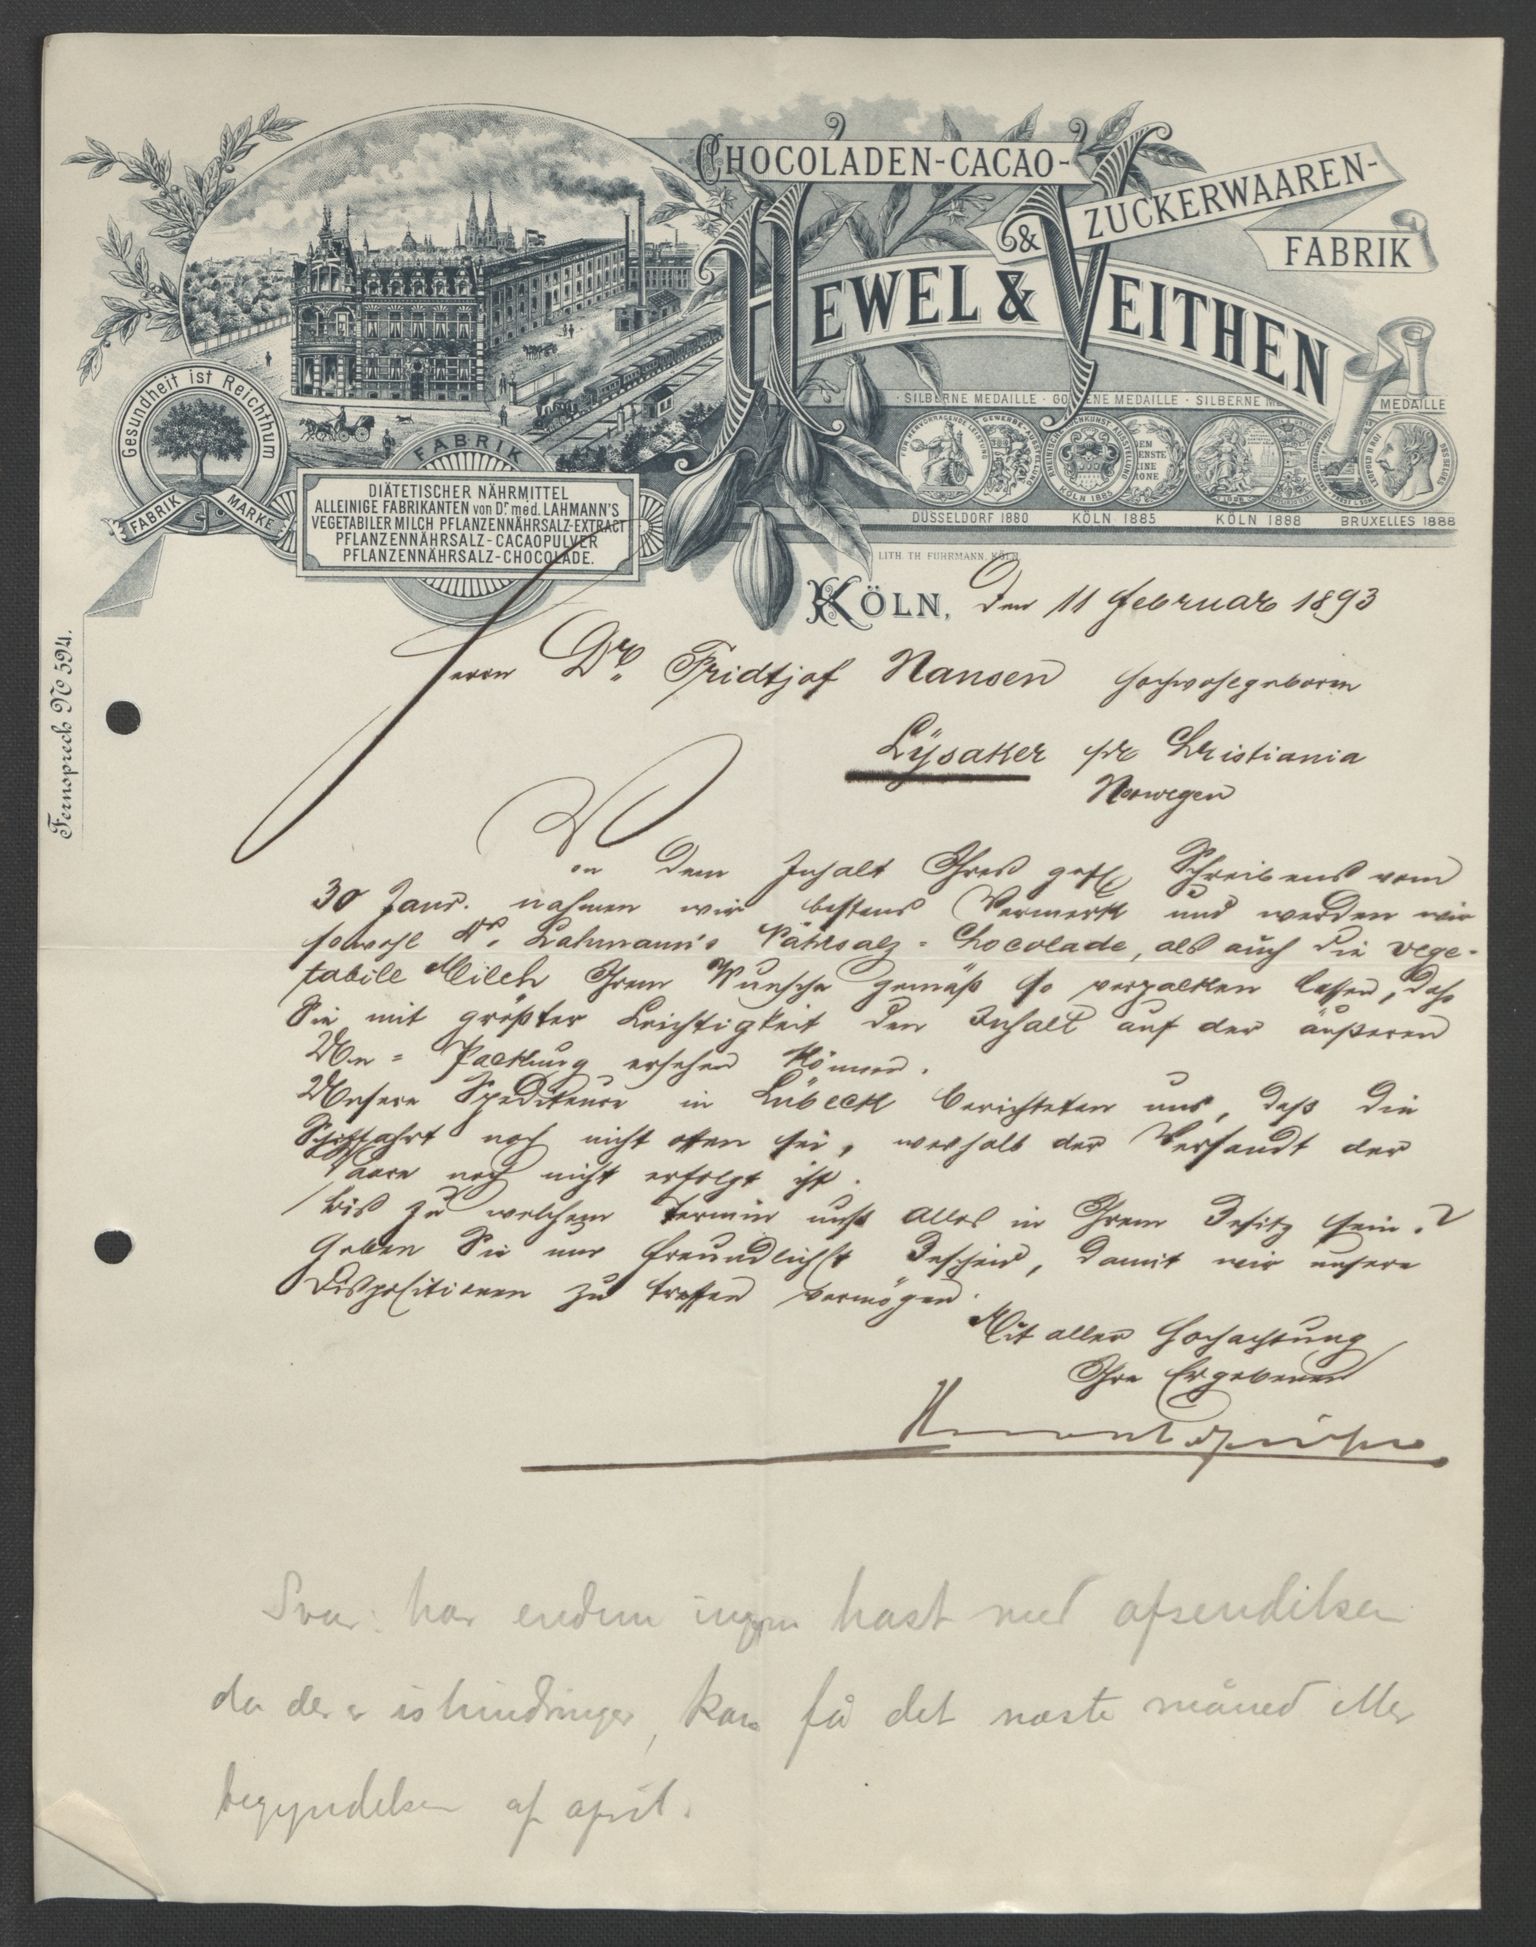 CHOCOLADEN-CACAO-
& ZUCKERWAAREN-
FABRIK
HEWEL & VEITHEN
Gesundheit ist Reichthum
FABRIK MARKE
FABRIK
DIÄTETISCHER NÄHRMITTEL
ALLEINIGE FABRIKANTEN von Dr. med. LAHMANN'S
VEGETABILER MILCH PFLANZENNÄHRSALZ-EXTRACT
PFLANZENNÄHRSALZ-CACAOPULVER
PFLANZENNÄHRSALZ-CHOCOLADE.
SILBERNE MEDAILLE · GOLDENE MEDAILLE · SILBERNE MEDAILLE
DÜSSELDORF 1880 KÖLN 1885 KÖLN 1888 BRUXELLES 1888
LITH. TH. FUHRMANN, KÖLN
Fernspreck No 594.
KÖLN, den 11 Februar 1893
Herrn Dr. Fridtjof Nansen Hochwohlgeboren
Lÿsaker pr Christiania
Norwegen
Von dem Inhalt Ihres gefl Schreibens vom
30 Janr. nahmen wir bestens Vermerk und werden wir
sowohl Dr. Lahmann's Nährsalz-Chocolade, als auch die vege-
tabile Milch Ihrem Wunsche gemäß so verpacken lassen, daß
Sie mit größter Leichtigkeit den Inhalt auf der äußeren
Um-Packung ersehen können.
Unsere Spediteure in Lübeck berichteten uns, daß die
Schiffahrt noch nicht offen sei, weshalb der Versandt der
Waare noch nicht erfolgt ist.
Bis zu welchem Termin muß Alles in Ihrem Besitz sein?
Geben Sie uns freundlichst Bescheid, damit wir unsere
Dispositionen zu treffen vermögen.
Mit aller Hochachtung
Ihre Ergebenen
Svar: har endnu ingen hast med afsendelsen
da der er ishindringer, kan få det næste måned eller
begyndelsen af april.